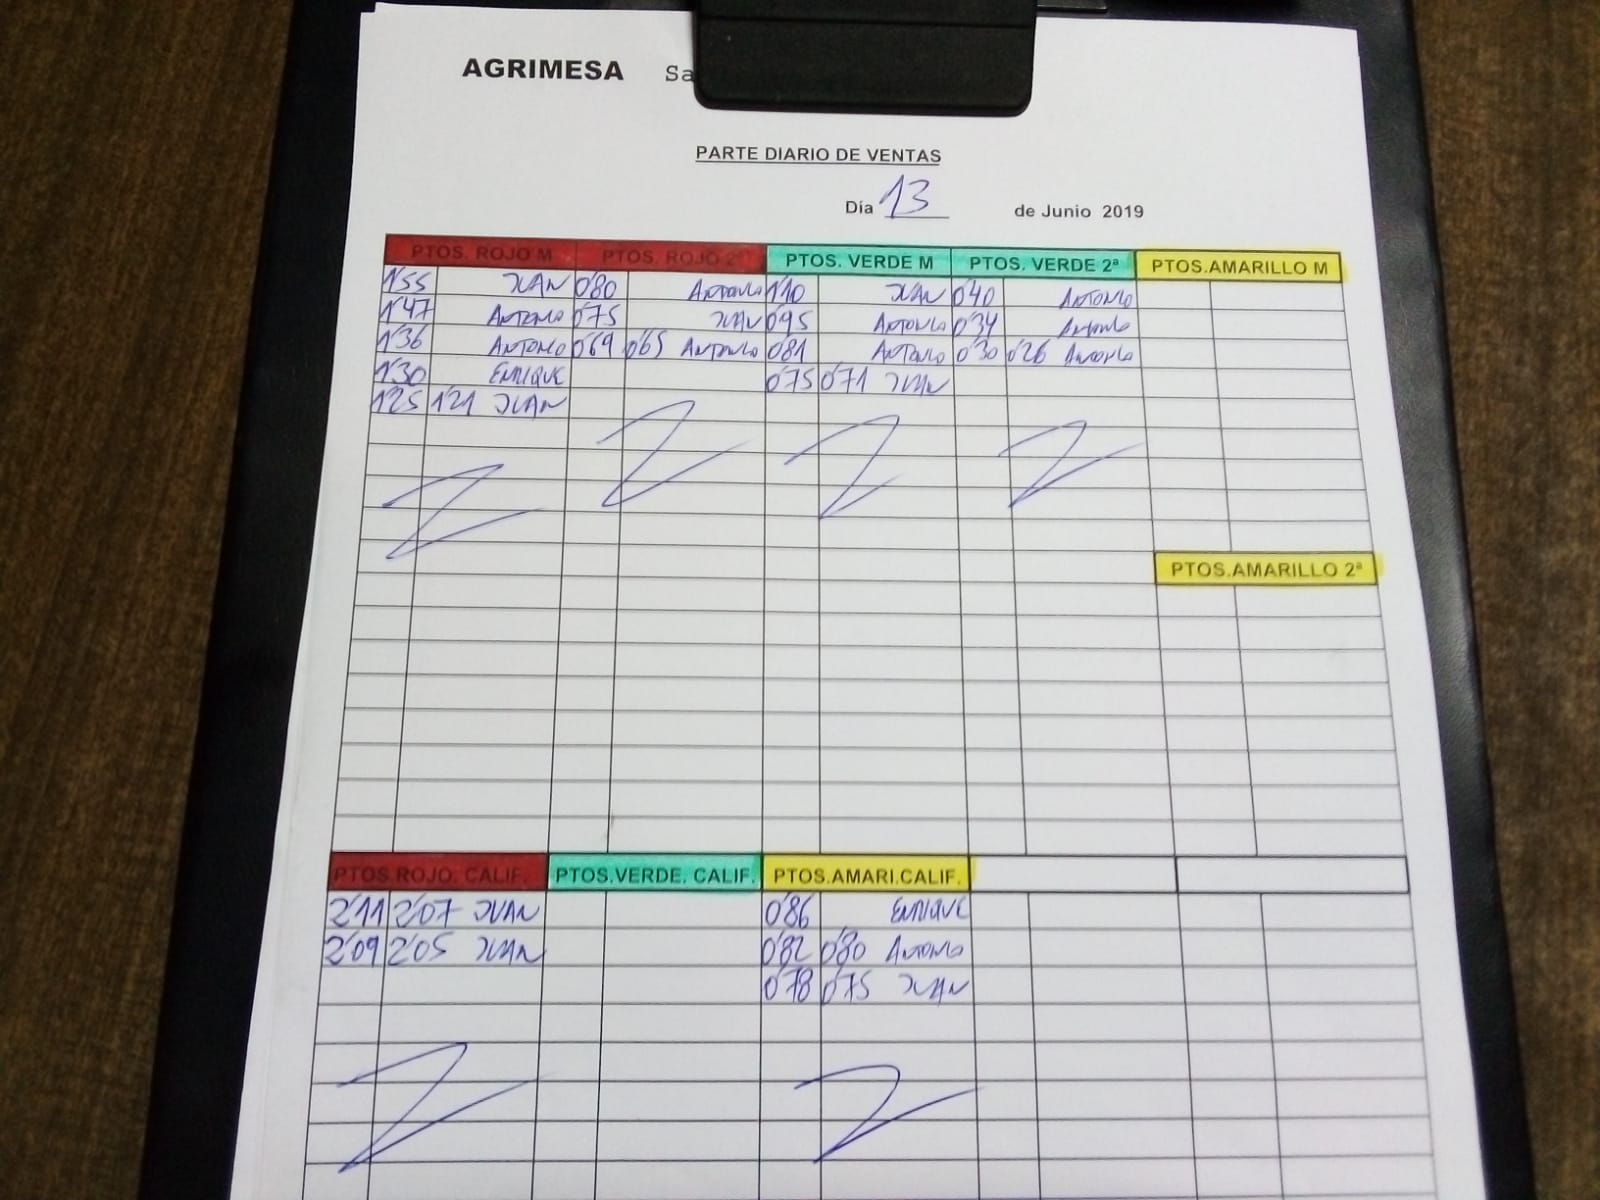 AGRIMESA Sa
PARTE DIARIO DE VENTAS
Día 13 de Junio 2019
PTOS. ROJO M PTOS. ROJO 2ª PTOS. VERDE M PTOS. VERDE 2ª PTOS.AMARILLO M
1'55 JUAN 0'80 ANTONIO 1'10 JUAN 0'40 ANTONIO
1'47 ANTONIO 0'75 JUAN 0'95 ANTONIO 0'34 ANTONIO
1'36 ANTONIO 0'69 0'65 ANTONIO 0'81 ANTONIO 0'30 0'26 ANTONIO
1'30 ENRIQUE 0'75 0'71 JUAN
1'25 1'21 JUAN
PTOS.AMARILLO 2ª
PTOS.ROJO. CALIF. PTOS.VERDE. CALIF. PTOS.AMARI.CALIF.
2'11 2'07 JUAN 0'86 ENRIQUE
2'09 2'05 JUAN 0'82 0'80 ANTONIO
0'78 0'75 JUAN